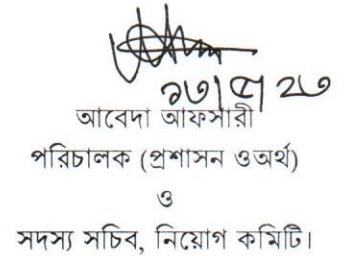 আবেদা আফসারী
পরিচালক (প্রশাসন ওঅর্থ)
ও
সদস্য সচিব, নিয়োগ কমিটি।